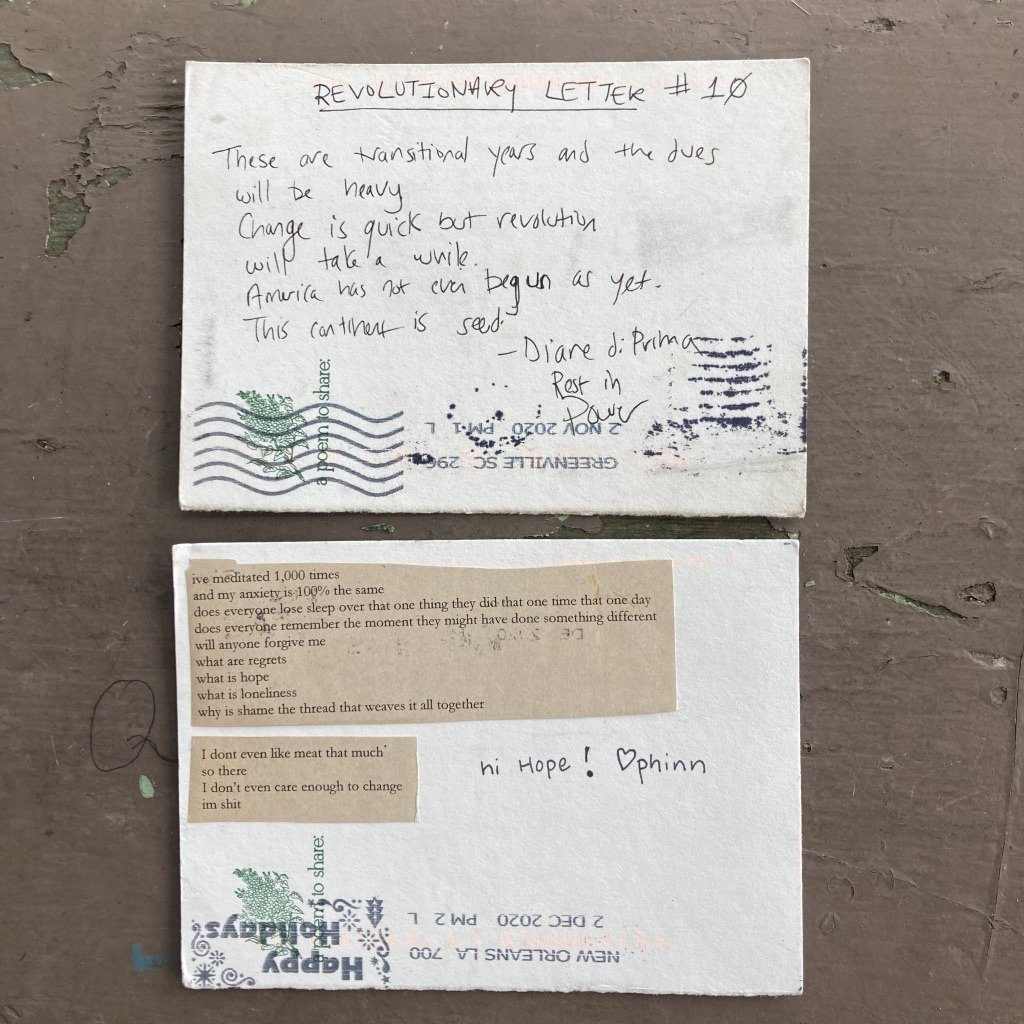 REVOLUTIONARY LETTER # 10
These are transitional years and the dues
will be heavy
Change is quick but revolution
will take a while.
America has not even begun as yet.
This continent is seed.
- Diane di Prima
Rest in
Power
a poem to share:
2 NOV 2020 PM 1 L
GREENVILLE SC 296
ive meditated 1,000 times
and my anxiety is 100% the same
does everyone lose sleep over that one thing they did that one time that one day
does everyone remember the moment they might have done something different
will anyone forgive me
what are regrets
what is hope
what is loneliness
why is shame the thread that weaves it all together
I dont even like meat that much
so there
I don't even care enough to change
im shit
hi Hope! ♡phinn
a poem to share:
Happy
Holidays
NEW ORLEANS LA 700
2 DEC 2020 PM 2 L